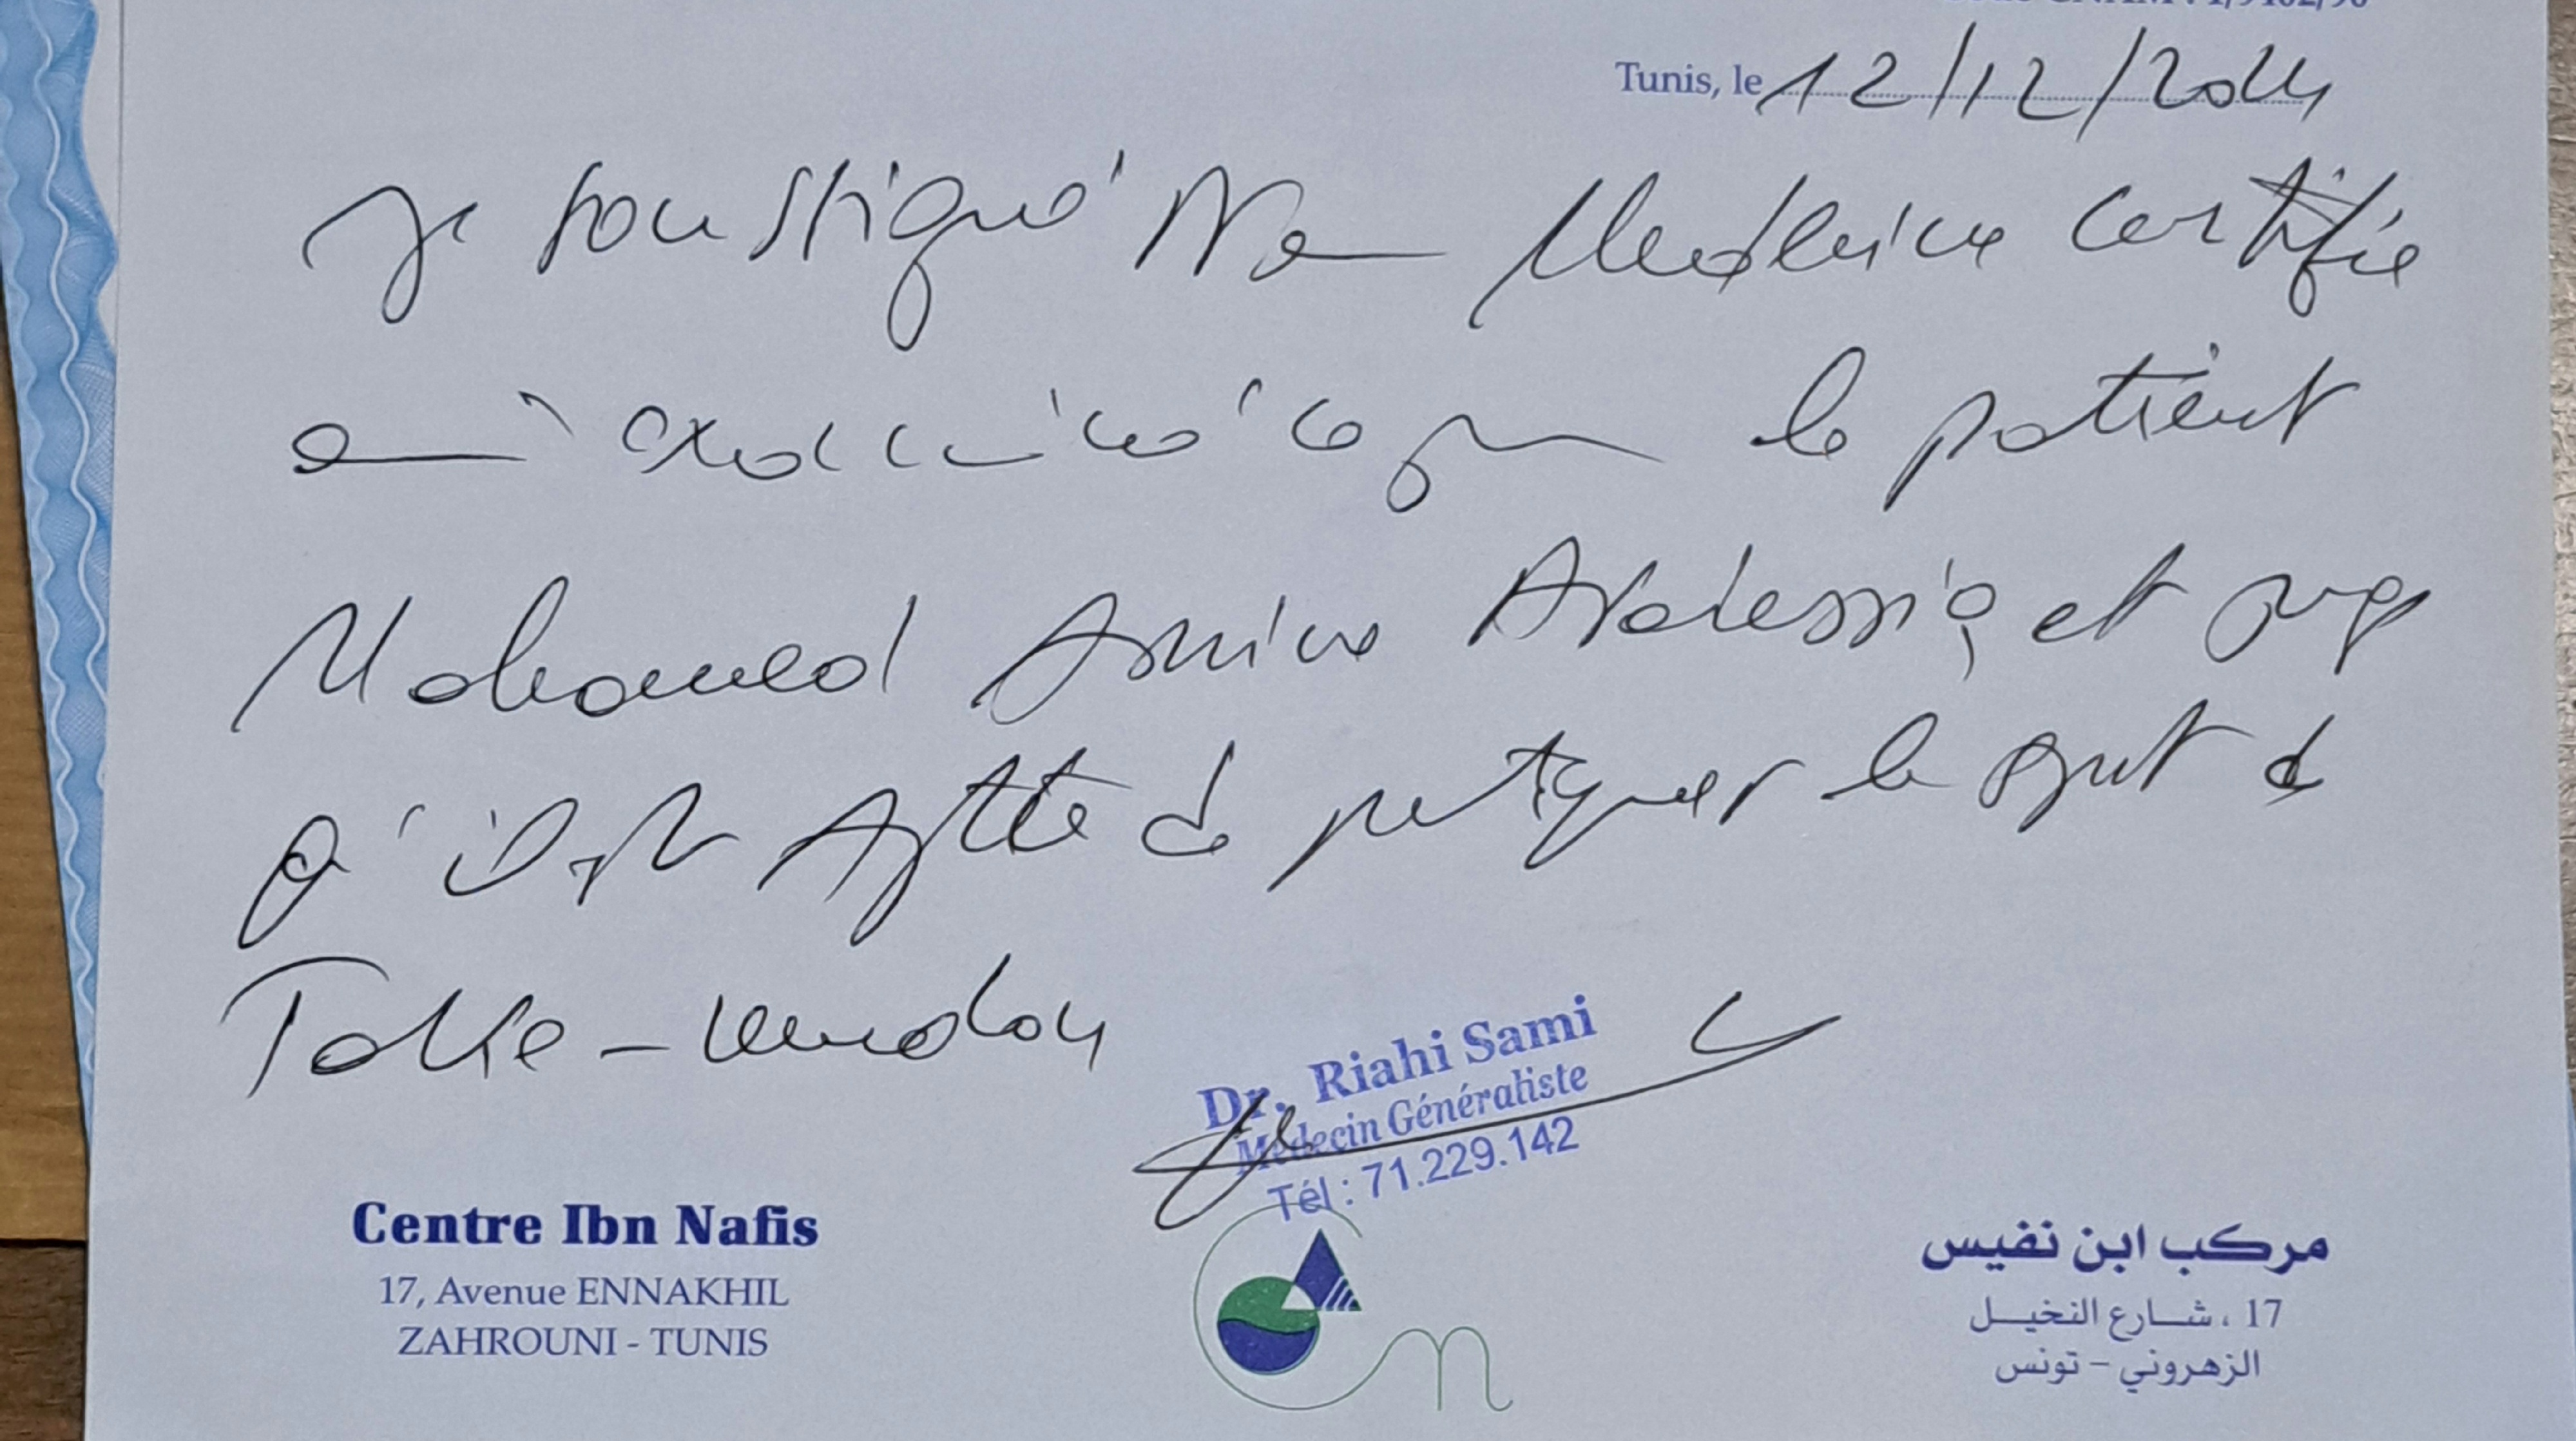 Tunis, le 12/12/2024
Je soussigné Dr en Médecine certifie
avoir examiné ce jour le patient
Mohamed Amine et juge
qu'il est Apte de pratiquer le sport de
Dr. Riahi Sami
Médecin Généraliste
Tél : 71.229.142
Centre Ibn Nafis
17, Avenue ENNAKHIL
ZAHROUNI - TUNIS
مركب ابن نفيس
17 ، شارع النخيل
الزهروني - تونس